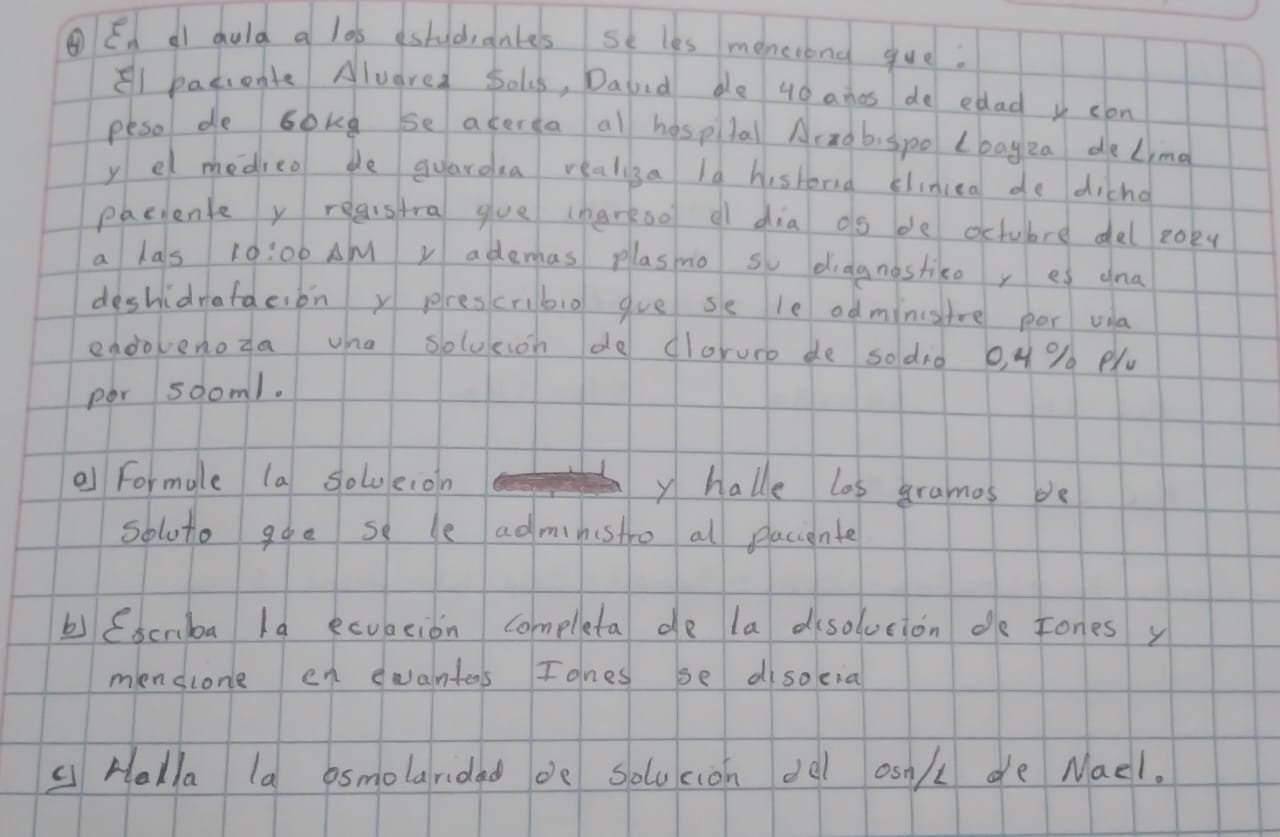 ④ En el aula a los estudiantes se les menciona que:
El paciente Alvarez Solis, David de 40 años de edad y con
peso de 60kg se acerca al hospital Arzobispo Loayza de Lima
y el medico de guardia realiza la historia clinica de dicho
paciente y registra que ingreso el dia 05 de octubre del 2024
a las 10:00 AM y ademas plasmo su diagnostico y es una
deshidratación y prescribio que se le administre por via
endovenoza una solución de cloruro de sodio 0,4% p/v
por 500ml.
a) Formule la solución y halle los gramos de
soluto que se le administro al paciente
b) Escriba la ecuación completa de la disolución de Iones y
mencione en cuantos Iones se disocia
c) Halla la osmolaridad de solución del osm/L de Nacl.